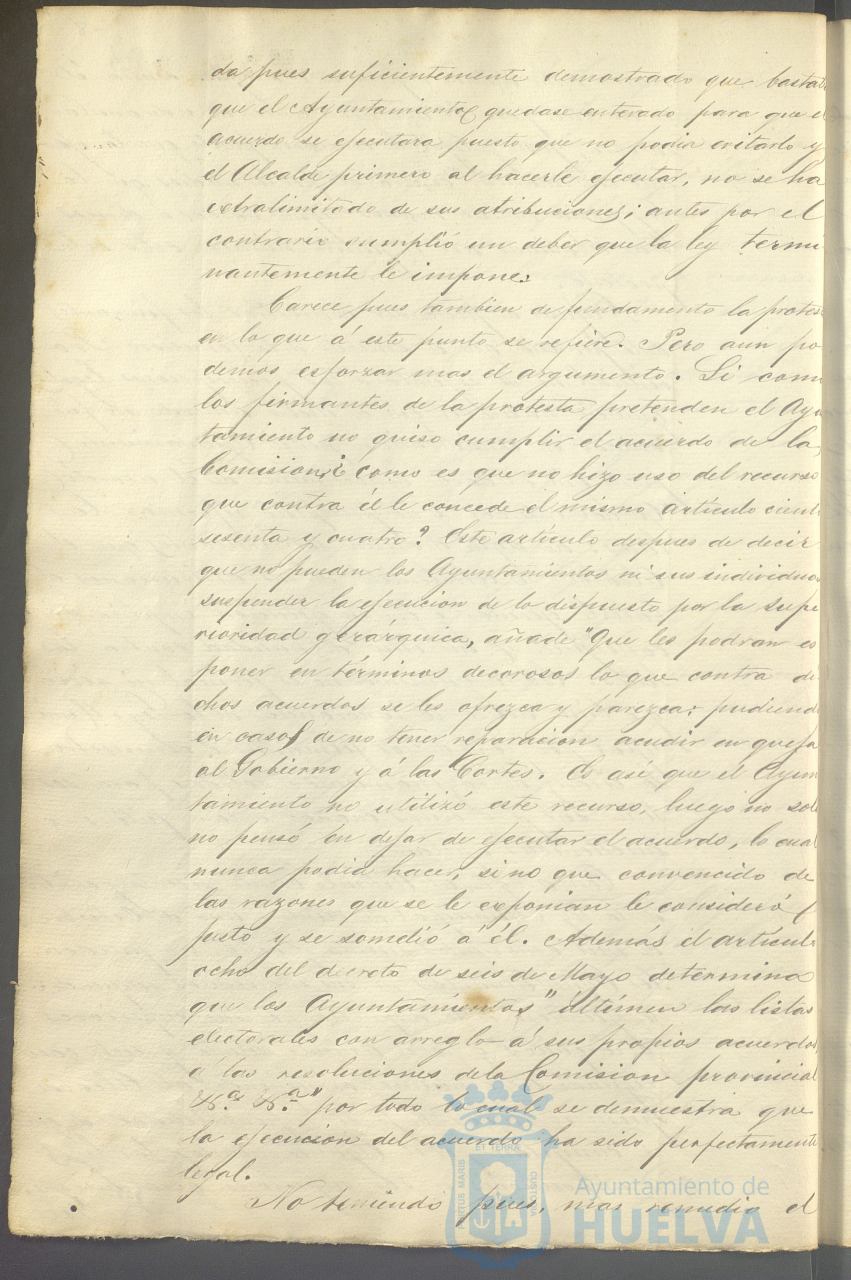 da pues suficientemente demostrado que basta
que el Ayuntamiento quedase enterado para que e
acuerdo se ejecutara puesto que no podia evitarlo y
el Alcalde primero al hacerle ejecutar, no se ha
extralimitado de sus atribuciones; antes por el
contrario cumplió un deber que la ley termi
nantemente le impone.
Carece pues tambien de fundamento la protes
en lo que á este punto se refiere. Pero aun po
demos esforzar mas el argumento. Si como
los firmantes de la protesta pretenden el Ayu
tamiento no quiso cumplir el acuerdo de la
Comision ¿ como es que no hizo uso del recurso
que contra él le concede el mismo artículo cient
sesenta y cuatro? Este artículo despues de decir
que no pueden los Ayuntamientos ni sus individuos
suspender la ejecucion de lo dispuesto por la supe
rioridad gerárquica, añade "Que les podran es
poner en términos decorosos lo que contra di
chos acuerdos se les ofrezca y parezca; pudiend
en casos de no tener reparacion acudir en queja
al Gobierno y á las Cortes. Es así que el Ayun
tamiento no utilizó este recurso, luego no solo
no pensó en dejar de ejecutar el acuerdo, lo cual
nunca podia hacer, si no que convencido de
las razones que se le exponian le consideró
justo y se sometió á él. Además el artícul
ocho del decreto de seis de Mayo determina
que los Ayuntamientos "últimen las listas
electorales con arreglo á sus propios acuerdos,
a las resoluciones de la Comision provincial
&.ª &.ª" por todo lo cual se demuestra que
la ejecucion del acuerdo ha sido perfectamente
legal.
No teniendo pues, mas remedio el
PORTUS MARIS ET TERRAE CUSTODIA
Ayuntamiento de
HUELVA